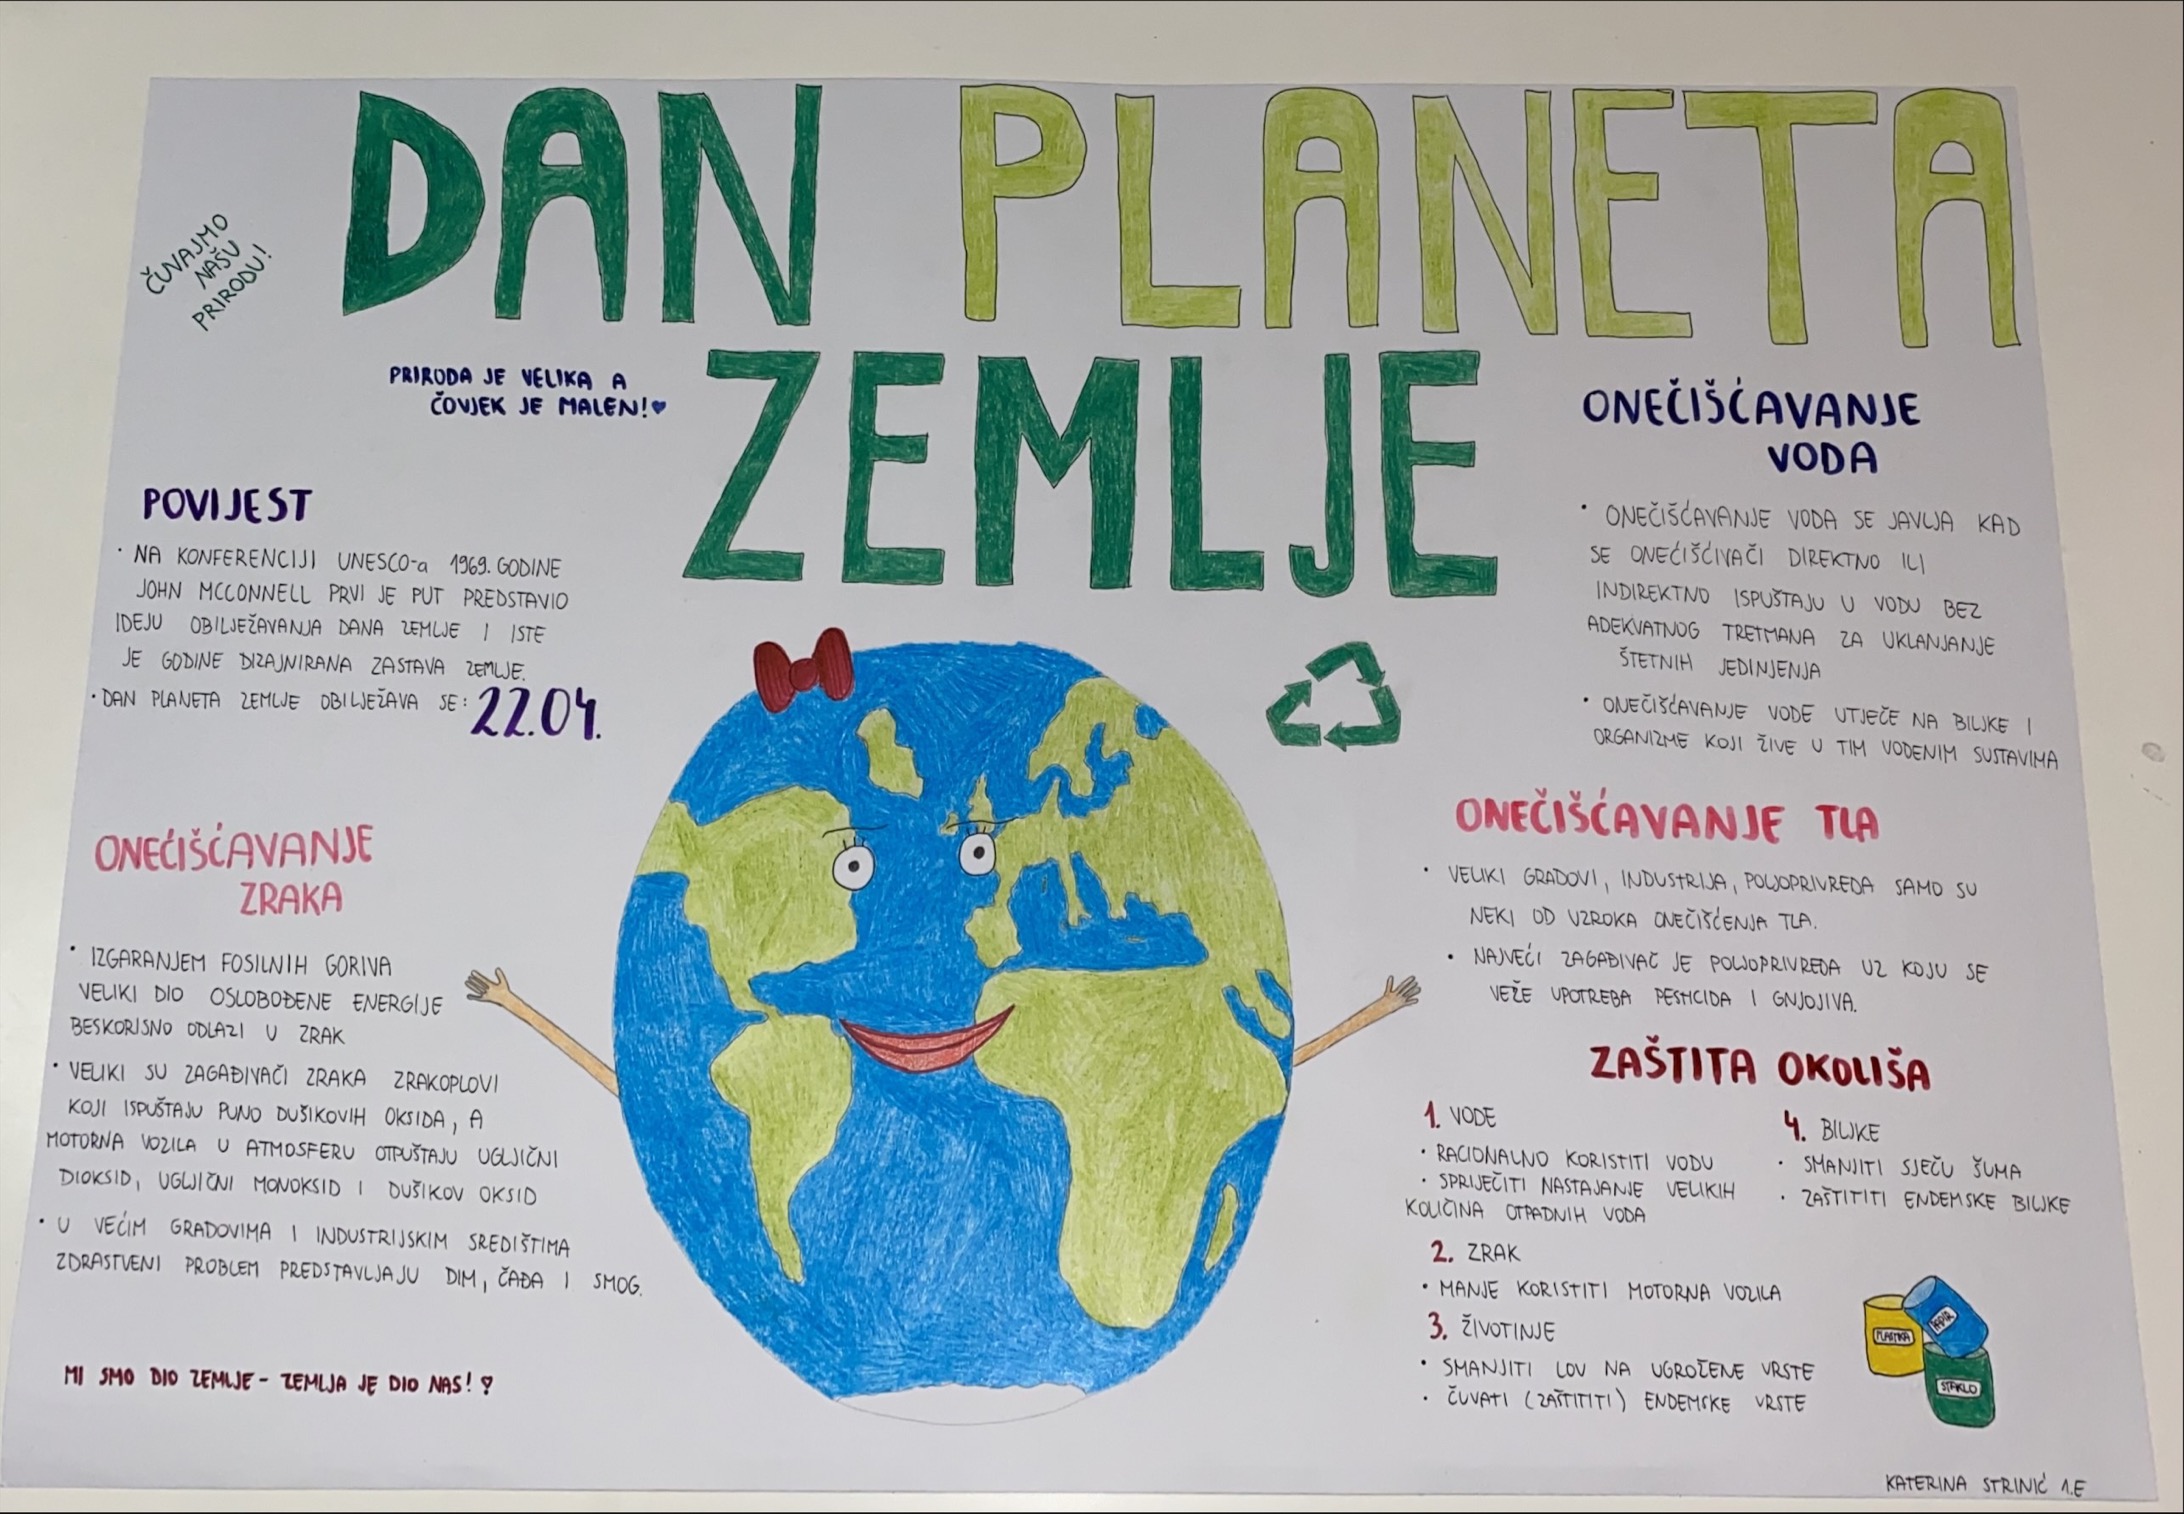 DAN PLANETA
ZEMLJE
ČUVAJMO
NAŠU
PRIRODU!
PRIRODA JE VELIKA A
ČOVJEK JE MALEN!
POVIJEST
· NA KONFERENCIJI UNESCO-a 1969. GODINE
JOHN MCCONNELL PRVI JE PUT PREDSTAVIO
IDEJU OBILJEŽAVANJA DANA ZEMLJE I ISTE
JE GODINE DIZAJNIRANA ZASTAVA ZEMLJE.
· DAN PLANETA ZEMLJE OBILJEŽAVA SE: 22.04.
ONEĆIŠĆAVANJE
ZRAKA
· IZGARANJEM FOSILNIH GORIVA
VELIKI DIO OSLOBOĐENE ENERGIJE
BESKORISNO ODLAZI U ZRAK
· VELIKI SU ZAGAĐIVAČI ZRAKA ZRAKOPLOVI
KOJI ISPUŠTAJU PUNO DUŠIKOVIH OKSIDA, A
MOTORNA VOZILA U ATMOSFERU OTPUŠTAJU UGLJIČNI
DIOKSID, UGLJIČNI MONOKSID I DUŠIKOV OKSID
· U VEĆIM GRADOVIMA I INDUSTRIJSKIM SREDIŠTIMA
ZDRASTVENI PROBLEM PREDSTAVLJAJU DIM, ČAĐA I SMOG.
MI SMO DIO ZEMLJE - ZEMLJA JE DIO NAS!
ONEČIŠĆAVANJE
VODA
· ONEČIŠĆAVANJE VODA SE JAVLJA KAD
SE ONEĆIŠĆIVAČI DIREKTNO ILI
INDIREKTNO ISPUŠTAJU U VODU BEZ
ADEKVATNOG TRETMANA ZA UKLANJANJE
ŠTETNIH JEDINJENJA
· ONEČIŠĆAVANJE VODE UTJEČE NA BILJKE I
ORGANIZME KOJI ŽIVE U TIM VODENIM SUSTAVIMA
ONEČIŠĆAVANJE TLA
· VELIKI GRADOVI, INDUSTRIJA, POLJOPRIVREDA SAMO SU
NEKI OD UZROKA ONEČIŠĆENJA TLA.
· NAJVEĆI ZAGAĐIVAČ JE POLJOPRIVREDA UZ KOJU SE
VEŽE UPOTREBA PESTICIDA I GNJOJIVA.
ZAŠTITA OKOLIŠA
1. VODE
· RACIONALNO KORISTITI VODU
· SPRIJEČITI NASTAJANJE VELIKIH
KOLIČINA OTPADNIH VODA
2. ZRAK
· MANJE KORISTITI MOTORNA VOZILA
3. ŽIVOTINJE
· SMANJITI LOV NA UGROŽENE VRSTE
· ČUVATI (ZAŠTITITI) ENDEMSKE VRSTE
4. BILJKE
· SMANJITI SJEČU ŠUMA
· ZAŠTITITI ENDEMSKE BILJKE
PLASTIKA
PAPIR
STAKLO
KATERINA STRINIĆ 1.E